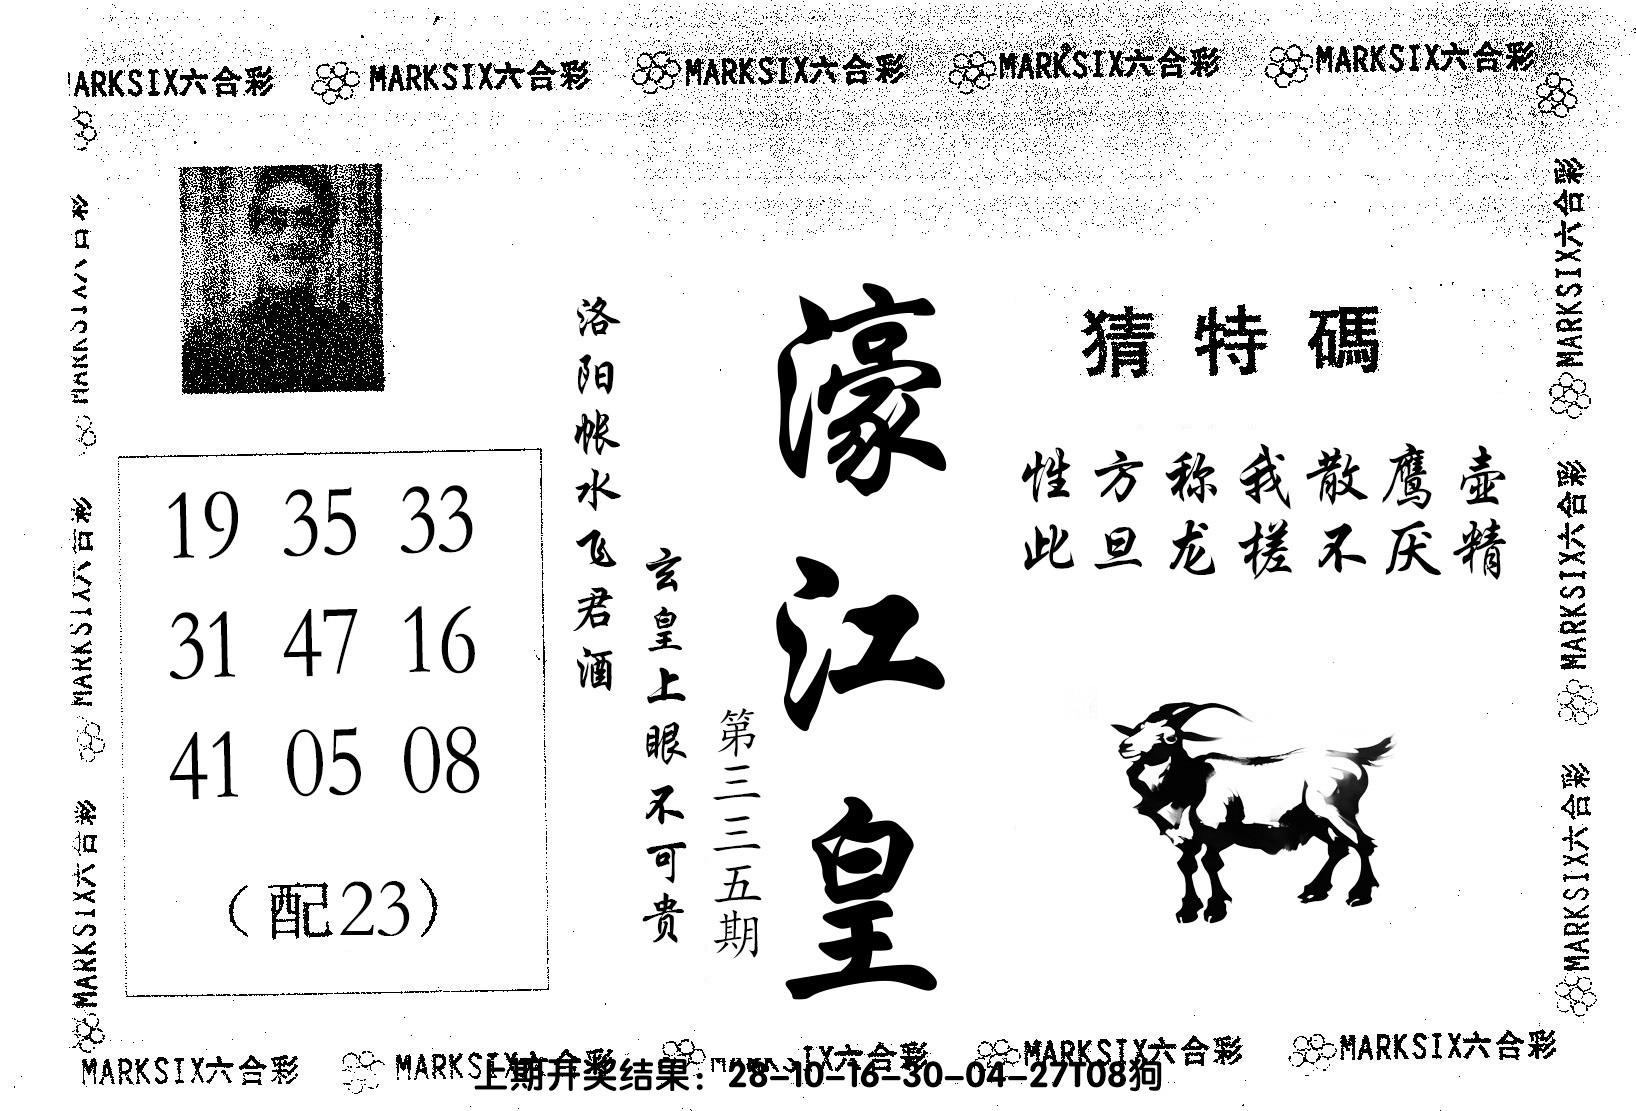 MARKSIX六合彩 MARKSIX六合彩 MARKSIX六合彩 MARKSIX六合彩 MARKSIX六合彩
猜特碼
性方称我散鹰壶
此旦龙槎不厌精
濠江皇
第三三五期
洛阳帐水飞君酒
玄皇上眼不可贵
19 35 33
31 47 16
41 05 08
（配23）
MARKSIX六合彩
MARKSIX六合彩
MARKSIX六合彩
MARKSIX六合彩
MARKSIX六合彩
MARKSIX六合彩
MARKSIX六合彩 MARKSIX六合彩 MARKSIX六合彩 MARKSIX六合彩 MARKSIX六合彩
上期开奖结果：28-10-16-30-04-27T08狗